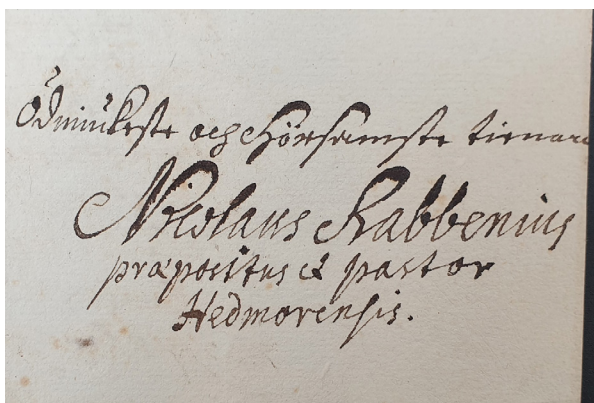 Ödmiukeste och hörsamste tienare
Nicolaus Rabbenius
præpositus & pastor
Hedmorensis.